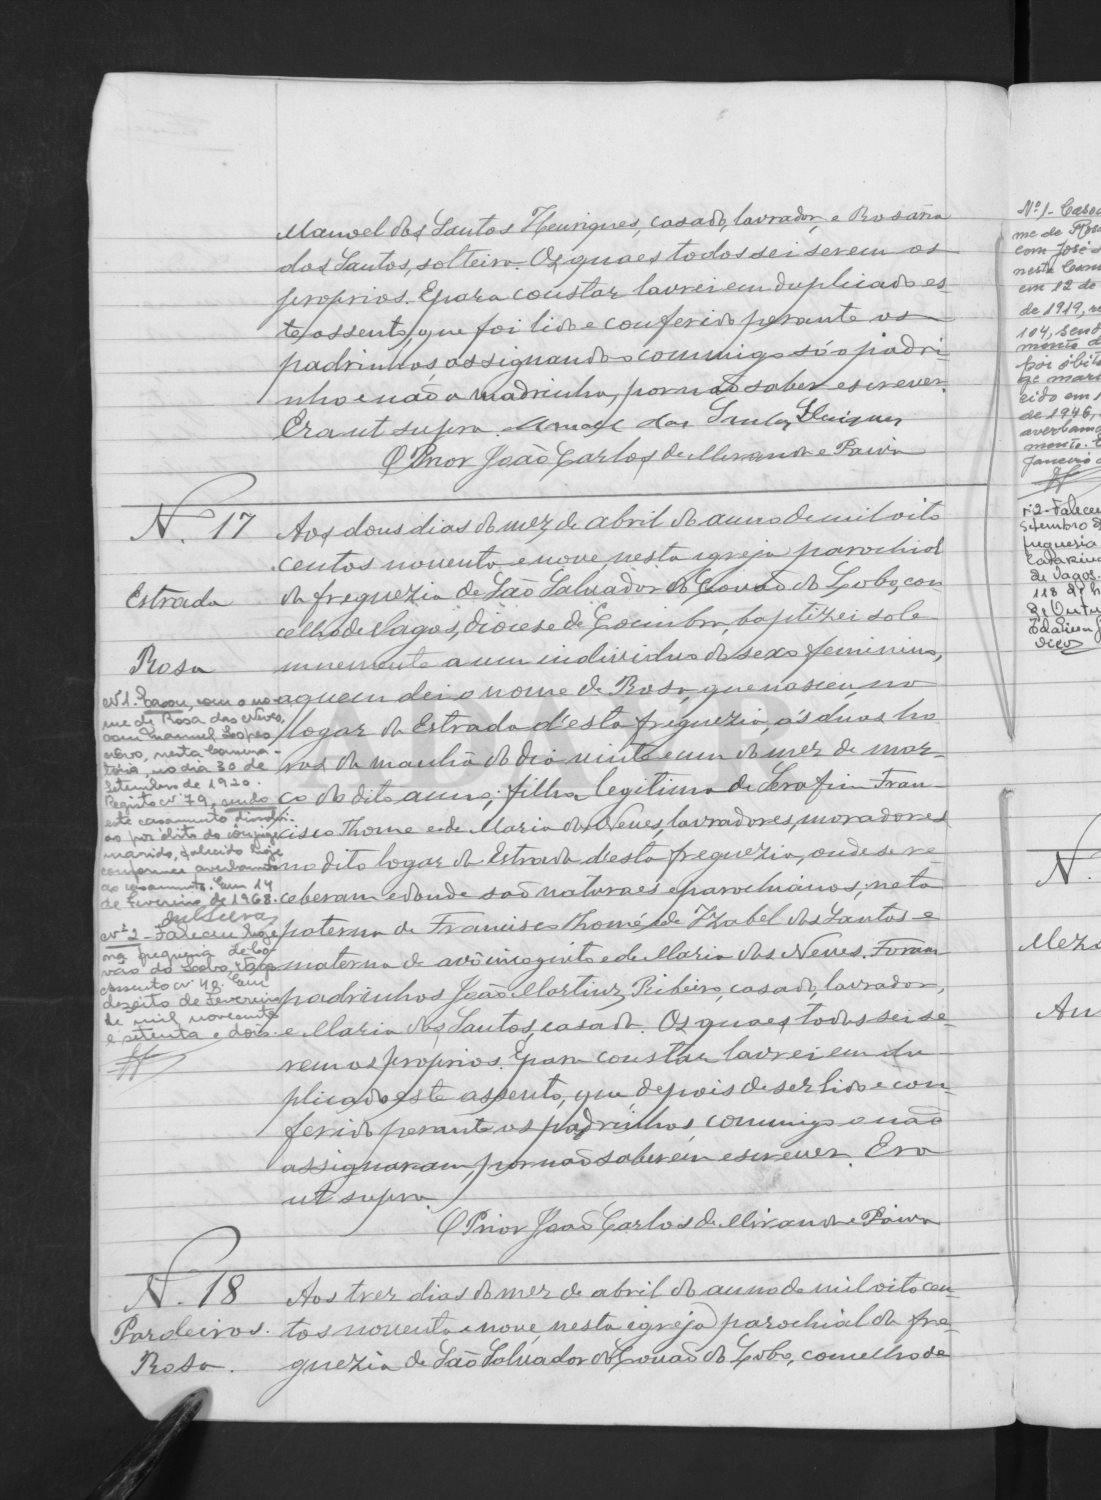 Manoel dos Santos Henriques, casado, lavrador, e Rosaria
dos Santos, solteira. Os quaes todos sei serem os
proprios. E para constar lavrei em duplicado es-
te assento, que foi lido e conferido perante os
padrinhos assignando commigo só o padri-
nho e não a madrinha, por não saber escrever.
Era ut supra. Manoel dos Santos Henriques
O Prior João Carlos de Miranda e Paiva
N. 17
Estrada
Rosa
Aos dous dias do mez de abril do anno de mil oito
centos noventa e nove, nesta igreja parochial
da freguezia de São Salvador do Covão do Lobo, con
celho de Vagos, diocese de Coimbra, baptizei sole
mnemente a um individuo do sexo feminino,
a quem dei o nome de Rosa, que nasceu no
logar da Estrada d'esta freguezia, ás duas ho
ras da manhã do dia vinte e um do mez de mar-
ço do dito anno; filha legitima de Serafim Fran-
cisco Thomé e de Maria das Neves, lavradores, moradores
no dito logar da Estrada d'esta freguezia, onde se re
ceberam e donde são naturaes e parochianos; neta
paterna de Francisco Thomé e de Izabel dos Santos e
materna de avô incognito e de Maria das Neves. Foram
padrinhos João Martins Ribeiro, casado, lavrador,
e Maria dos Santos, casada. Os quaes todos sei se-
rem os proprios. E para constar lavrei em du
plicado este assento, que depois de ser lido e con
ferido perante os padrinhos, commigo o não
assignaram, por não saberem escrever. Era
ut supra.
O Prior João Carlos de Miranda e Paiva
Nº 1. Casou, com o no-
me de Rosa das Neves,
com Manuel Lopes
novo, nesta Conserva-
tória, no dia 30 de
Setembro de 1920.
Registo nº 79, sendo
este casamento dissolvi-
do por óbito do conjuge
marido, falecido hoje
conforme averbamento
ao casamento. Em 14
de Fevereiro de 1968.
Nº 2 - Faleceu hoje
na freguezia de Co-
vão do Lobo, Vagos
assento nº 48. Em
dezoito de Fevereiro
de mil novecentos
e setenta e dois.
N. 18
Pardeiros.
Rosa.
Aos trez dias do mez de abril do anno de mil oito cen
tos noventa e nove, nesta igreja parochial da fre-
guezia de São Salvador do Covão do Lobo, concelho de
Nº 1 - Casou
me de Rosa
com José
nesta Cons
em 12 de
de 1919,
104, send
mento d
por óbito
ge mari
cido em
de 1946,
averbam
mento.
Janeiro
nº 2 - Falece
setembro
freguesia
Catarina
de Vagos.
118
de Outu
N.